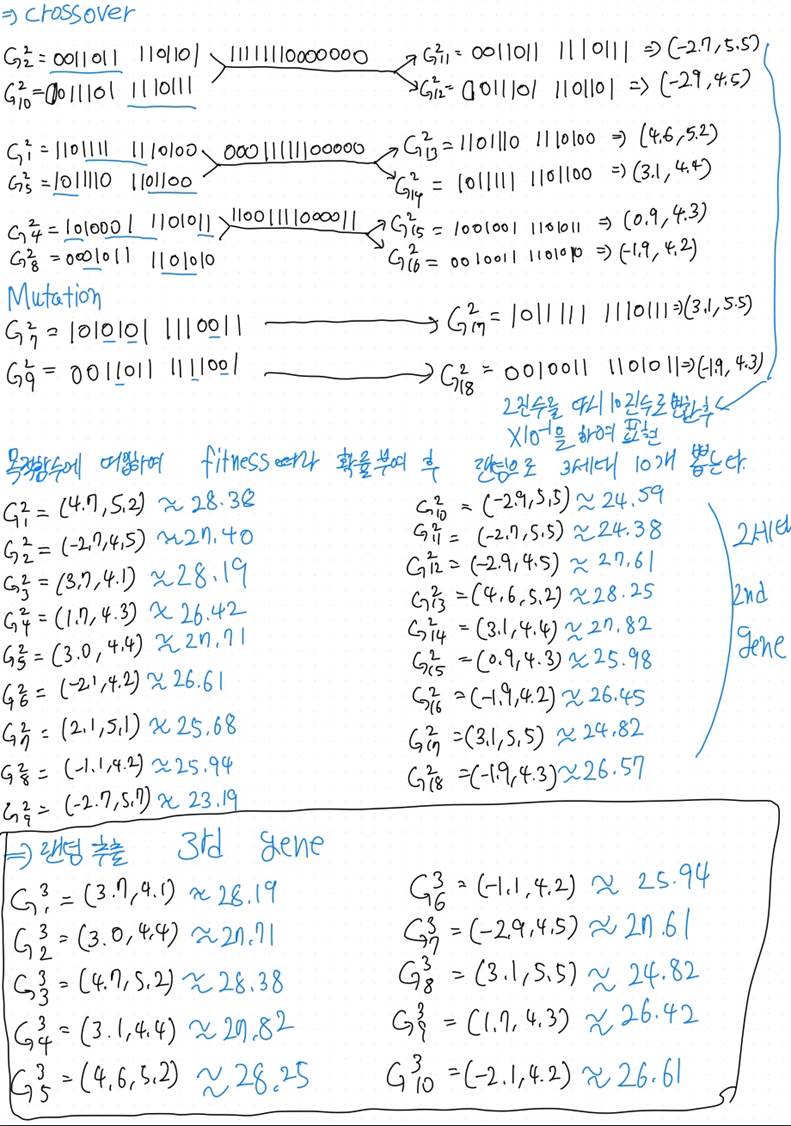 ⇒ crossover
G²₂ = 0011011 1101101 11111110000000 G²₁₁ = 0011011 1110111 ⇒ (-2.7, 5.5)
G²₁₀ = 0011101 1110111 G²₁₂ = 0011101 1101101 ⇒ (-2.9, 4.5)
G²₁ = 1101111 1110100 00011111100000 G²₁₃ = 1101110 1110100 ⇒ (4.6, 5.2)
G²₅ = 1011110 1101100 G²₁₄ = 1011111 1101100 ⇒ (3.1, 4.4)
G²₄ = 1010001 1101011 11001111000011 G²₁₅ = 1001001 1101011 ⇒ (0.9, 4.3)
G²₈ = 0001011 1101010 G²₁₆ = 0010011 1101010 ⇒ (-1.9, 4.2)
Mutation
G²₇ = 1010101 1110011 G²₁₇ = 1011111 1110111 ⇒ (3.1, 5.5)
G²₉ = 0011011 1111001 G²₁₈ = 0010011 1101011 ⇒ (-1.9, 4.3)
2진수를 다시 10진수로 변환후
×10⁻¹을 하여 표현
목적함수에 대입하여 fitness따라 확률부여 후 랜덤으로 3세대 10개 뽑는다.
G²₁ = (4.7, 5.2) ≈ 28.38
G²₂ = (-2.7, 4.5) ≈ 27.40
G²₃ = (3.7, 4.1) ≈ 28.19
G²₄ = (1.7, 4.3) ≈ 26.42
G²₅ = (3.0, 4.4) ≈ 27.71
G²₆ = (-2.1, 4.2) ≈ 26.61
G²₇ = (2.1, 5.1) ≈ 25.68
G²₈ = (-1.1, 4.2) ≈ 25.94
G²₉ = (-2.7, 5.7) ≈ 23.19
G²₁₀ = (-2.9, 5.5) ≈ 24.59
G²₁₁ = (-2.7, 5.5) ≈ 24.38
G²₁₂ = (-2.9, 4.5) ≈ 27.61
G²₁₃ = (4.6, 5.2) ≈ 28.25
G²₁₄ = (3.1, 4.4) ≈ 27.82
G²₁₅ = (0.9, 4.3) ≈ 25.98
G²₁₆ = (-1.9, 4.2) ≈ 26.45
G²₁₇ = (3.1, 5.5) ≈ 24.82
G²₁₈ = (-1.9, 4.3) ≈ 26.57
2세대
2nd
gene
⇒ 랜덤 추출 3rd gene
G³₁ = (3.7, 4.1) ≈ 28.19
G³₂ = (3.0, 4.4) ≈ 27.71
G³₃ = (4.7, 5.2) ≈ 28.38
G³₄ = (3.1, 4.4) ≈ 27.82
G³₅ = (4.6, 5.2) ≈ 28.25
G³₆ = (-1.1, 4.2) ≈ 25.94
G³₇ = (-2.9, 4.5) ≈ 27.61
G³₈ = (3.1, 5.5) ≈ 24.82
G³₉ = (1.7, 4.3) ≈ 26.42
G³₁₀ = (-2.1, 4.2) ≈ 26.61